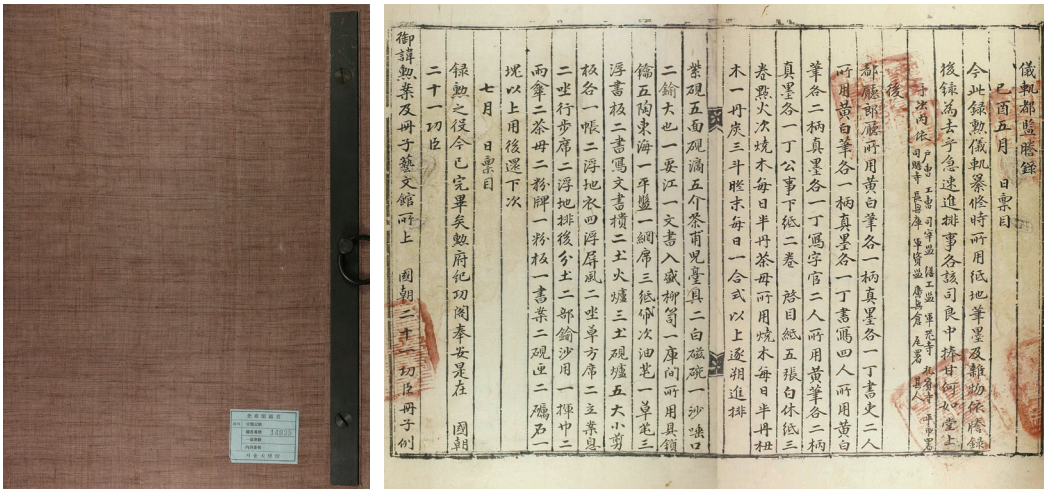 儀軌都監謄錄
己酉五月 日稟目
今此錄勳儀軌纂修時所用紙地筆墨及雜物依謄錄
後錄爲去乎急速進排事各該司良中捧甘何如堂上
手決內依
後
都廳郎廳所用黃白筆各一柄真墨各一丁書吏二人
所用黃白筆各一柄真墨各一丁書寫四人所用黃白
筆各二柄真墨各一丁寫字官二人所用黃筆各二柄
真墨各一丁公事下紙二卷 啓目紙五張白休紙三
卷點火次燒木每日半丹茶母所用燒木每日半丹杻
木一丹炭三斗 末每日一合式以上逐朔進排
紫硯五面硯滴五介茶甫兒臺具二白磁碗一沙 口
二鍮大也一要江一文書入盛柳笥一庫間所用具鎖
鑰五陶東海一平盤一網席三紙帒次油芚一草芚三
浮書板二書寫文書樻二土火爐三土硯爐五大小剪
板各一帳二浮地衣四浮屏風二坐單方席二立案息
二坐行步席二浮地排後分土二部鍮沙用一揮巾二
雨傘二茶母二粉牌一粉板一書案二硯匣二礪石一
塊以上用後還下次
七月 日稟目
錄勳之役今已完畢矣勳府紀功閣奉安是在 國朝
二十一功臣
御諱勳案及冊子藝文館所上 國朝二十一功臣冊子例
奎章閣圖書
서울大學校